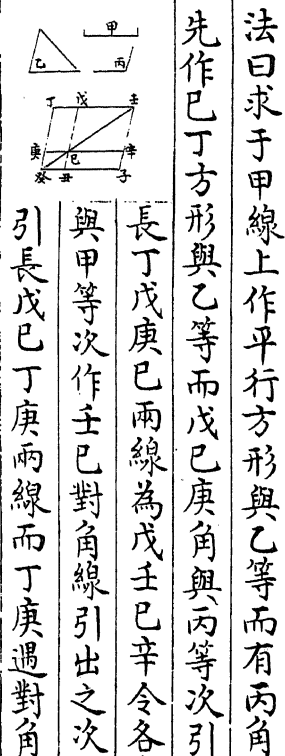 法曰求于甲線上作平行方形與乙等而有丙角
先作巳丁方形與乙等而戊巳庚角與丙等次引
長丁戊庚巳兩線為戊壬巳辛令各
與甲等次作壬巳對角線引出之次
引長戊巳丁庚兩線而丁庚遇對角
甲
乙
丙
丁
戊
壬
庚
巳
辛
癸
丑
子